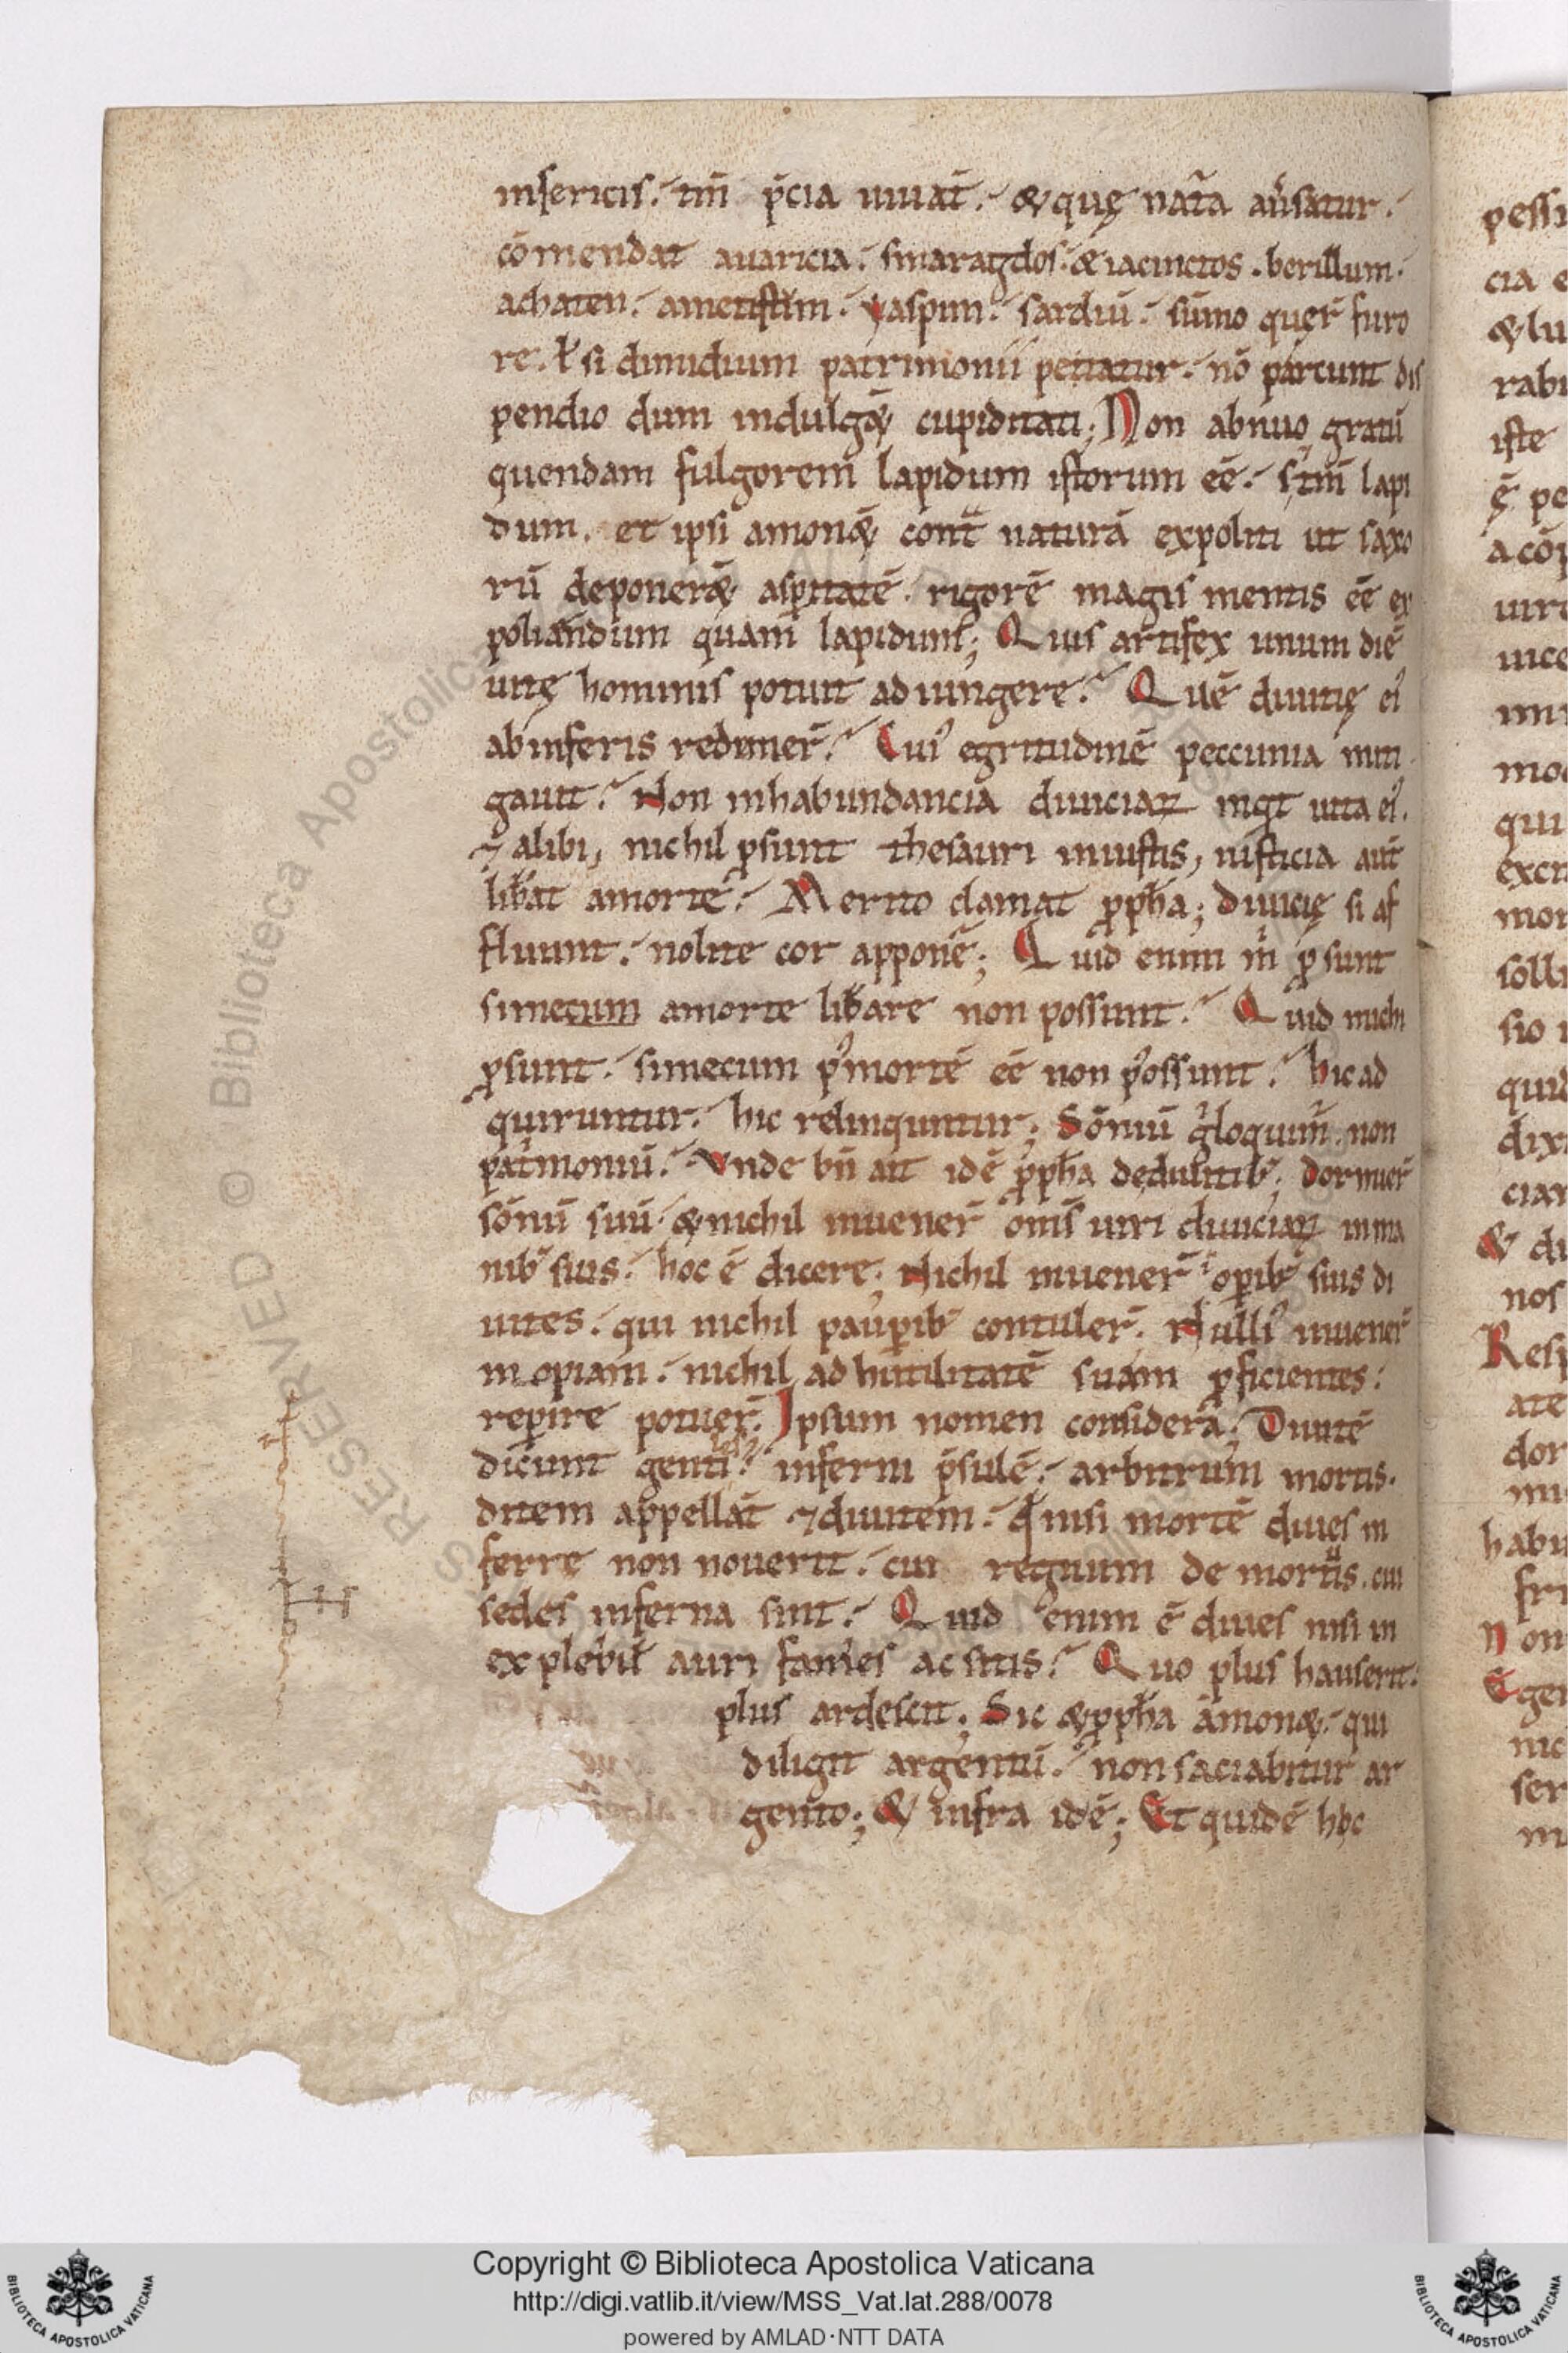 insericis. tm̄ p̄cia uiuat̄. & quę nat̄a aũsatur.
cōmendat auaricia. smaragdos. & iacinctos. berillum.
achaten. ametistum. yaspim. sardiū. sūmo quęr̄ furo
re. ł si dimidium patrimonii petatur. nō parcunt dis
pendio dum indulg&̄ cupiditati; Non abnuo gratū
quendam fulgorem lapidum istorum eē. s; tm̄ lapi
dum. et ipsi āmon&̄ cont̄ naturā expoliti ut saxo
rū deponer&̄ asp̄itatē. rigorē magis mentis eē ex
poliandum quam lapidum; Quis artifex unum diē
uitę hominis potuit adiungere. Quē diuitię ei'
abinferis redimer̄. Cui' egritudinē peccunia miti
gauit. Non inhabundancia diuiciaꝝ inqt uita ei'.
⁊ alibi, nichil ꝓsunt thesauri iniustis, iusticia aut̄
lib̄at amorte. Merito clamat ꝓph̄a; Diuicię si af
fluunt. nolite cor apponē; Quid enim m̄ ꝓsunt
simecum amorte lib̄are non possunt. Quid michi
ꝓsunt. simecum p' mortē eē non possunt. hic ad
quiruntur. hic relinquntur; Sōniū g̊ loquim̄. non
pat̄moniū. Vnde bn̄ ait idē ꝓph̄a dedi uitib; dormier̄
sōnū suū. & nichil inuener̄ om̄s uiri diuiciaꝝ inma
nib; suis. hoc ē dicere; Nichil inuener̄ ĩ opib; suis di
uites. qui nichil paupib; contuler̄. Nulli' inuener̄
inopiam. nichil adhutilitatē suam ꝓficientes.
rep̄ire potuer̄. Ipsum nomen considera; Diuitē
dicunt genti les. inferni p̄sulē. arbitrum mortis.
ditem appellāt ⁊ diuitem. qd̄ nisi mortē diues in
ferre non nouerit. cui regnum de mortuis. cui
sedes inferna sint. Quid enim ē diues nisi in
explebił auri fames ac sitis. Quo plus hauserit.
plus ardescit; Sic & ꝓph̄a āmon&. qui
diligit argentū. non saciabitur ar
gento; & infra idē; Et quidē hoc
pessi
cia e
& lu
rabi
iste
ę pe
a cōp
uirt
uice
mi
mod
qui
excit
mor
solli
sio
quid
dix
ciar
& di
nos
Resp
ate
dor
mi
habu
fri
Non
Egen
nic
ser
m
RESERVED © Biblioteca Apostolica
Copyright © Biblioteca Apostolica Vaticana
http://digi.vatlib.it/view/MSS_Vat.lat.288/0078
powered by AMLAD·NTT DATA
BIBLIOTECA APOSTOLICA VATICANA
BIBLIOTECA APOSTOLICA VATICANA